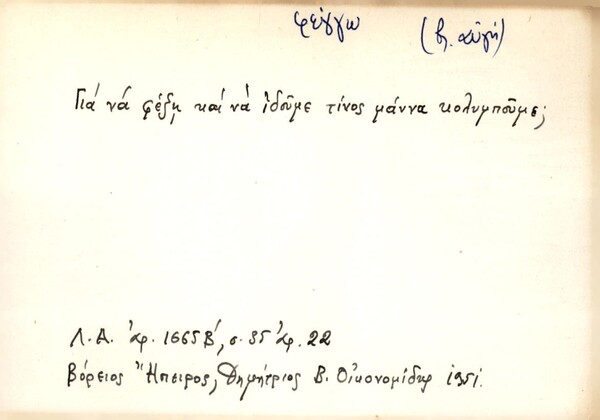 φέγγω (βλ. αὐγή)
Γιά νά φέξῃ καί νά ἰδοῦμε τίνος μάννα κολυμποῦμε;
Λ.Α. ἀρ. 1665 Β΄, σ. 35 ἀρ. 22
Βόρειος Ἤπειρος, Δημήτριος Β. Οἰκονομίδης 1951.